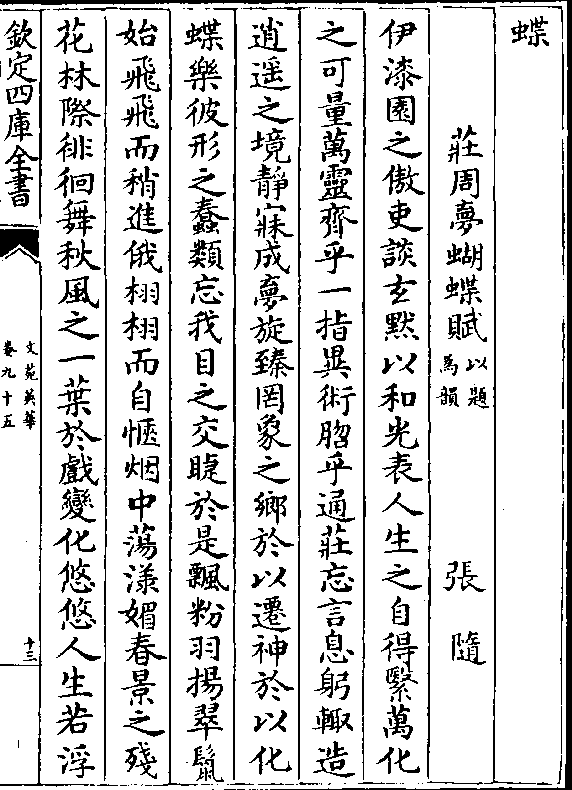 蝶
莊周夢蝴蝶賦以題爲韻 張隨
伊漆園之傲吏談玄默以和光表人生之自得繄萬化
之可量萬靈齊乎一指異術胳乎通莊忘言息躬輙造
逍遥之境靜寐成夢旋臻罔象之鄉於以遷神於以化
蝶樂彼形之蠢類忘我目之交睫於是飄粉羽揚翠鬛
始飛飛而稍進俄栩栩而自愜烟中蕩漾媚春景之殘
花林際徘徊舞秋風之一葉於戲變化悠悠人生若浮
欽定四庫全書
文苑英華
卷九十五
十三